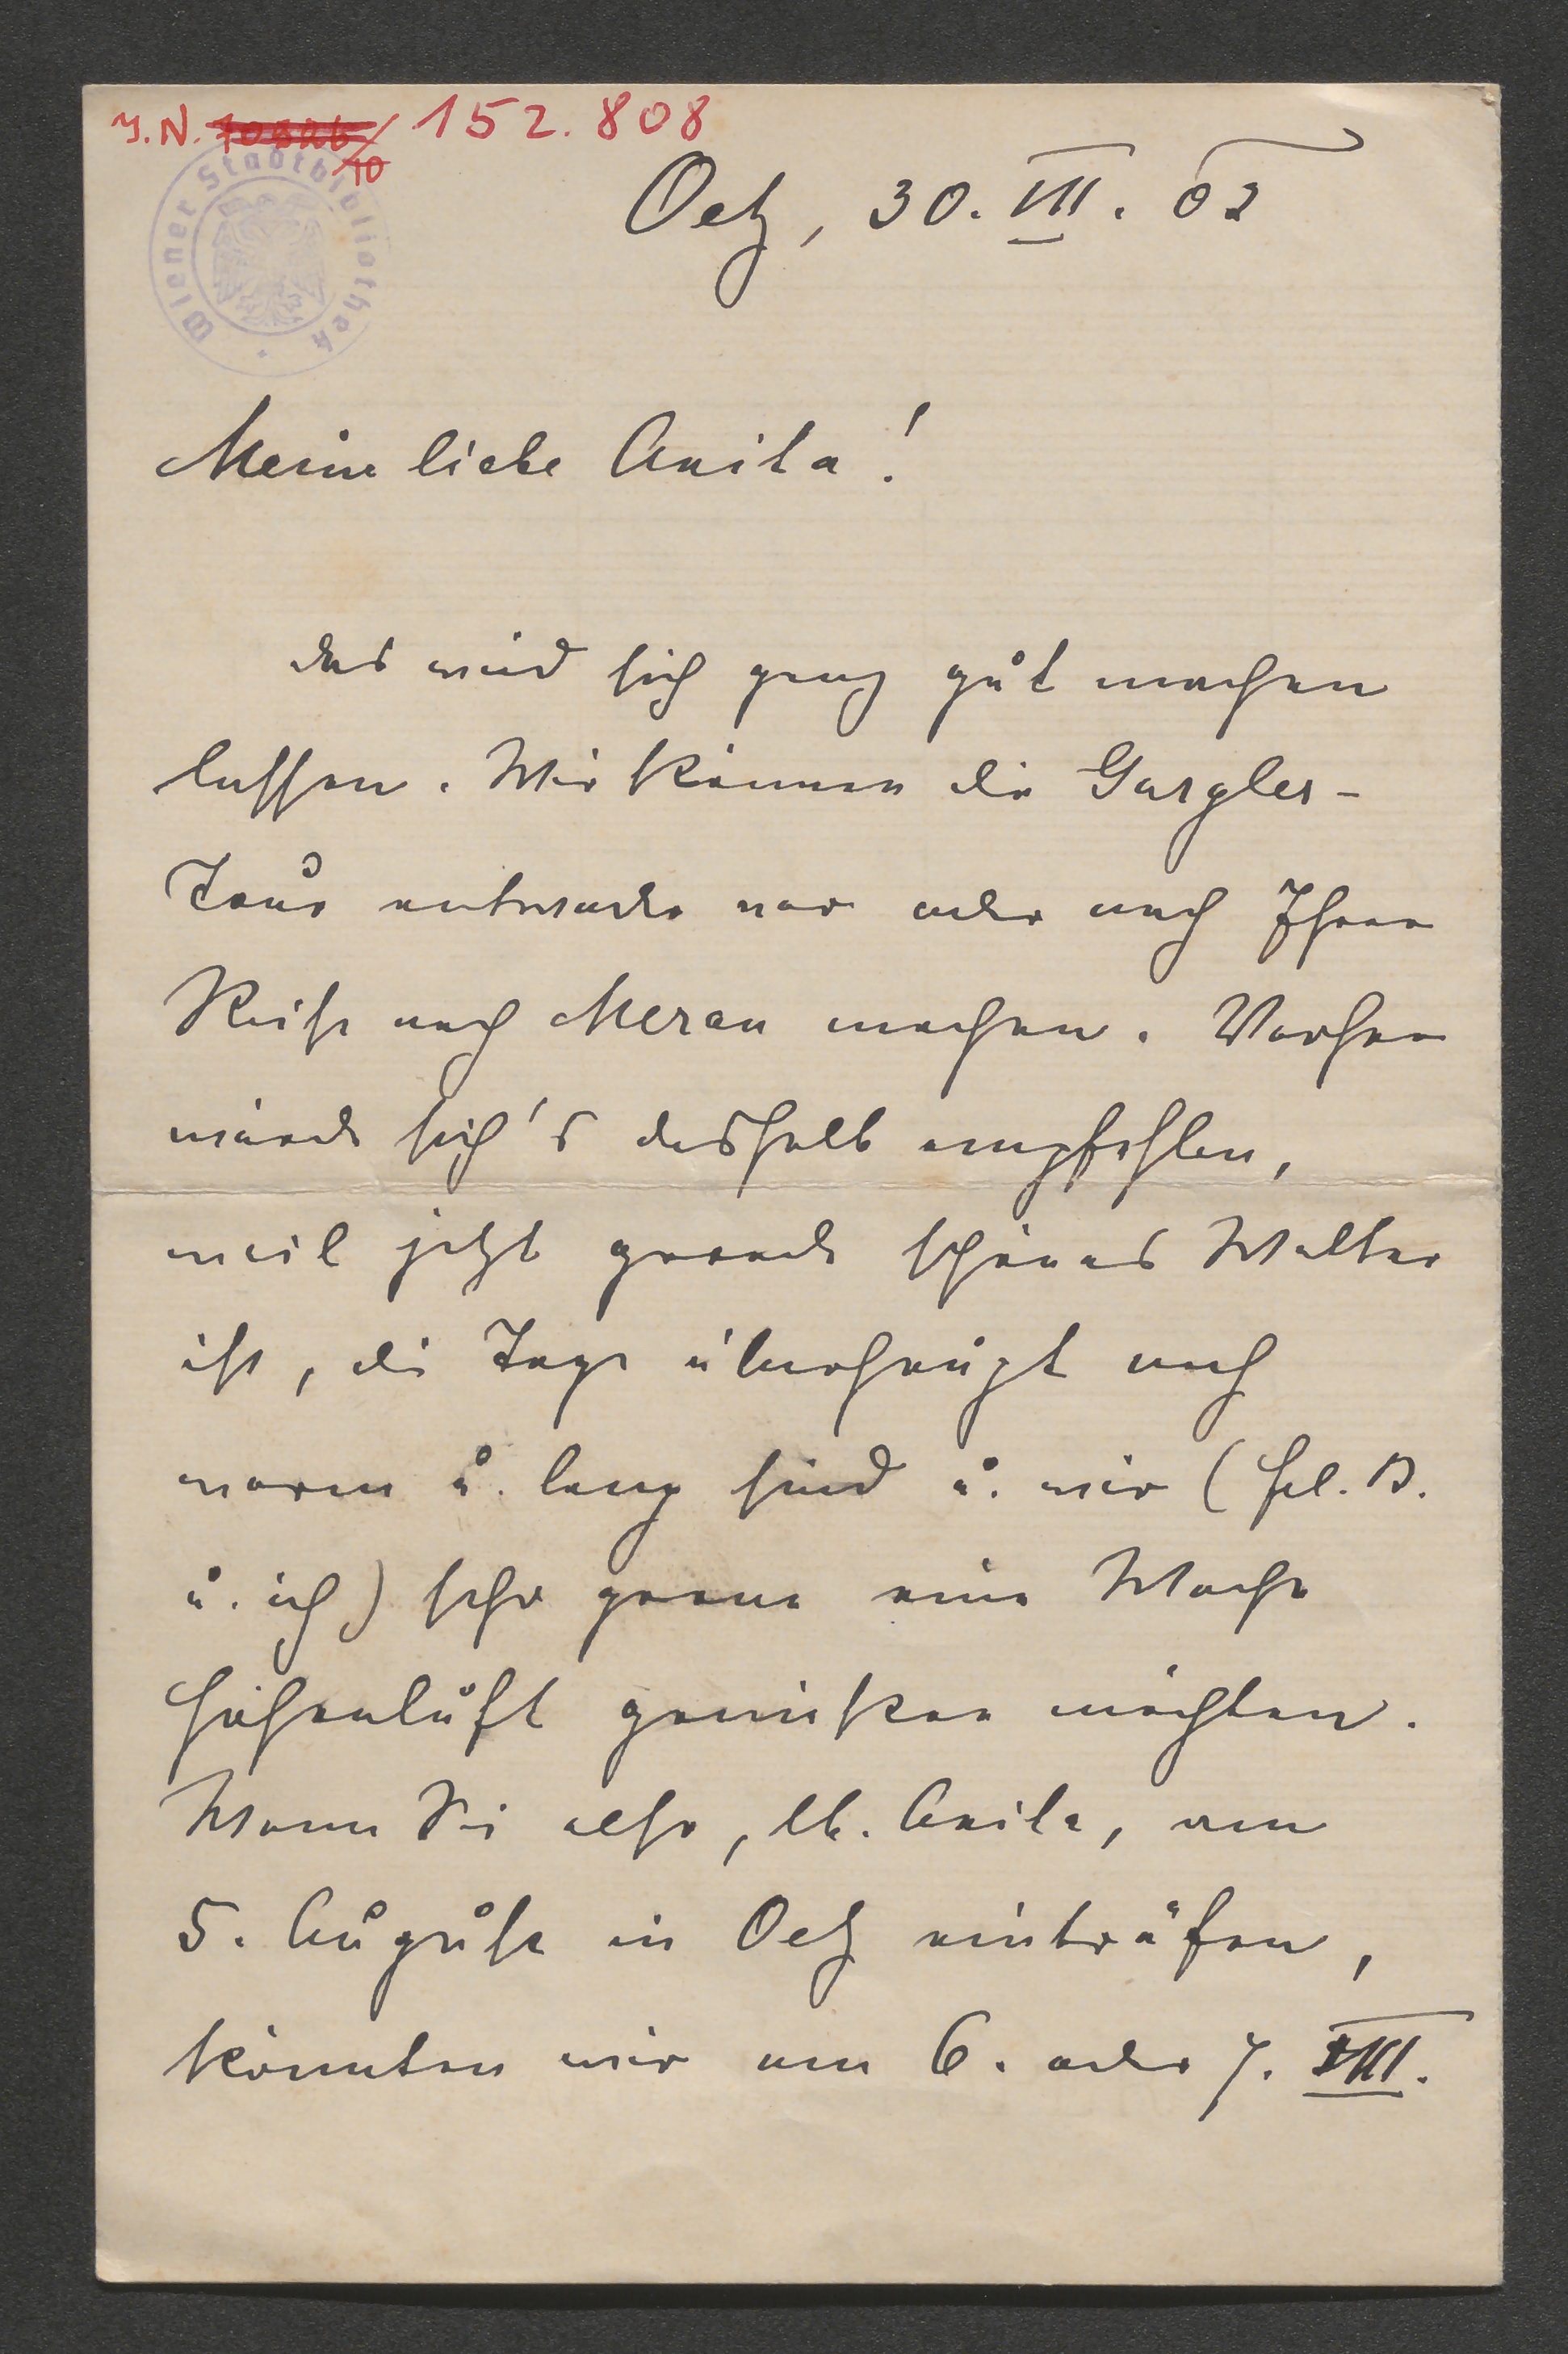 J.N. 152.808
10
Wiener Stadtbibliothek
Oetz, 30. VII. 02
Meine liebe Anita!
das wird sich ganz gut machen
lassen. Wir können die Gurgler-
Tour entweder vor oder nach Ihrer
Reise nach Meran machen. Vorher
würde sich's deshalb empfehlen,
weil jetzt gerade schönes Wetter
ist, die Tage überhaupt noch
warm u. lang sind u. wir (Frl. B.
u. ich) sehr gerne eine Woche
Höhenluft genießen möchten.
Wenn Sie also, lb. Anita, am
5. August in Oetz einträfen,
könnten wir am 6. oder 7. VIII.